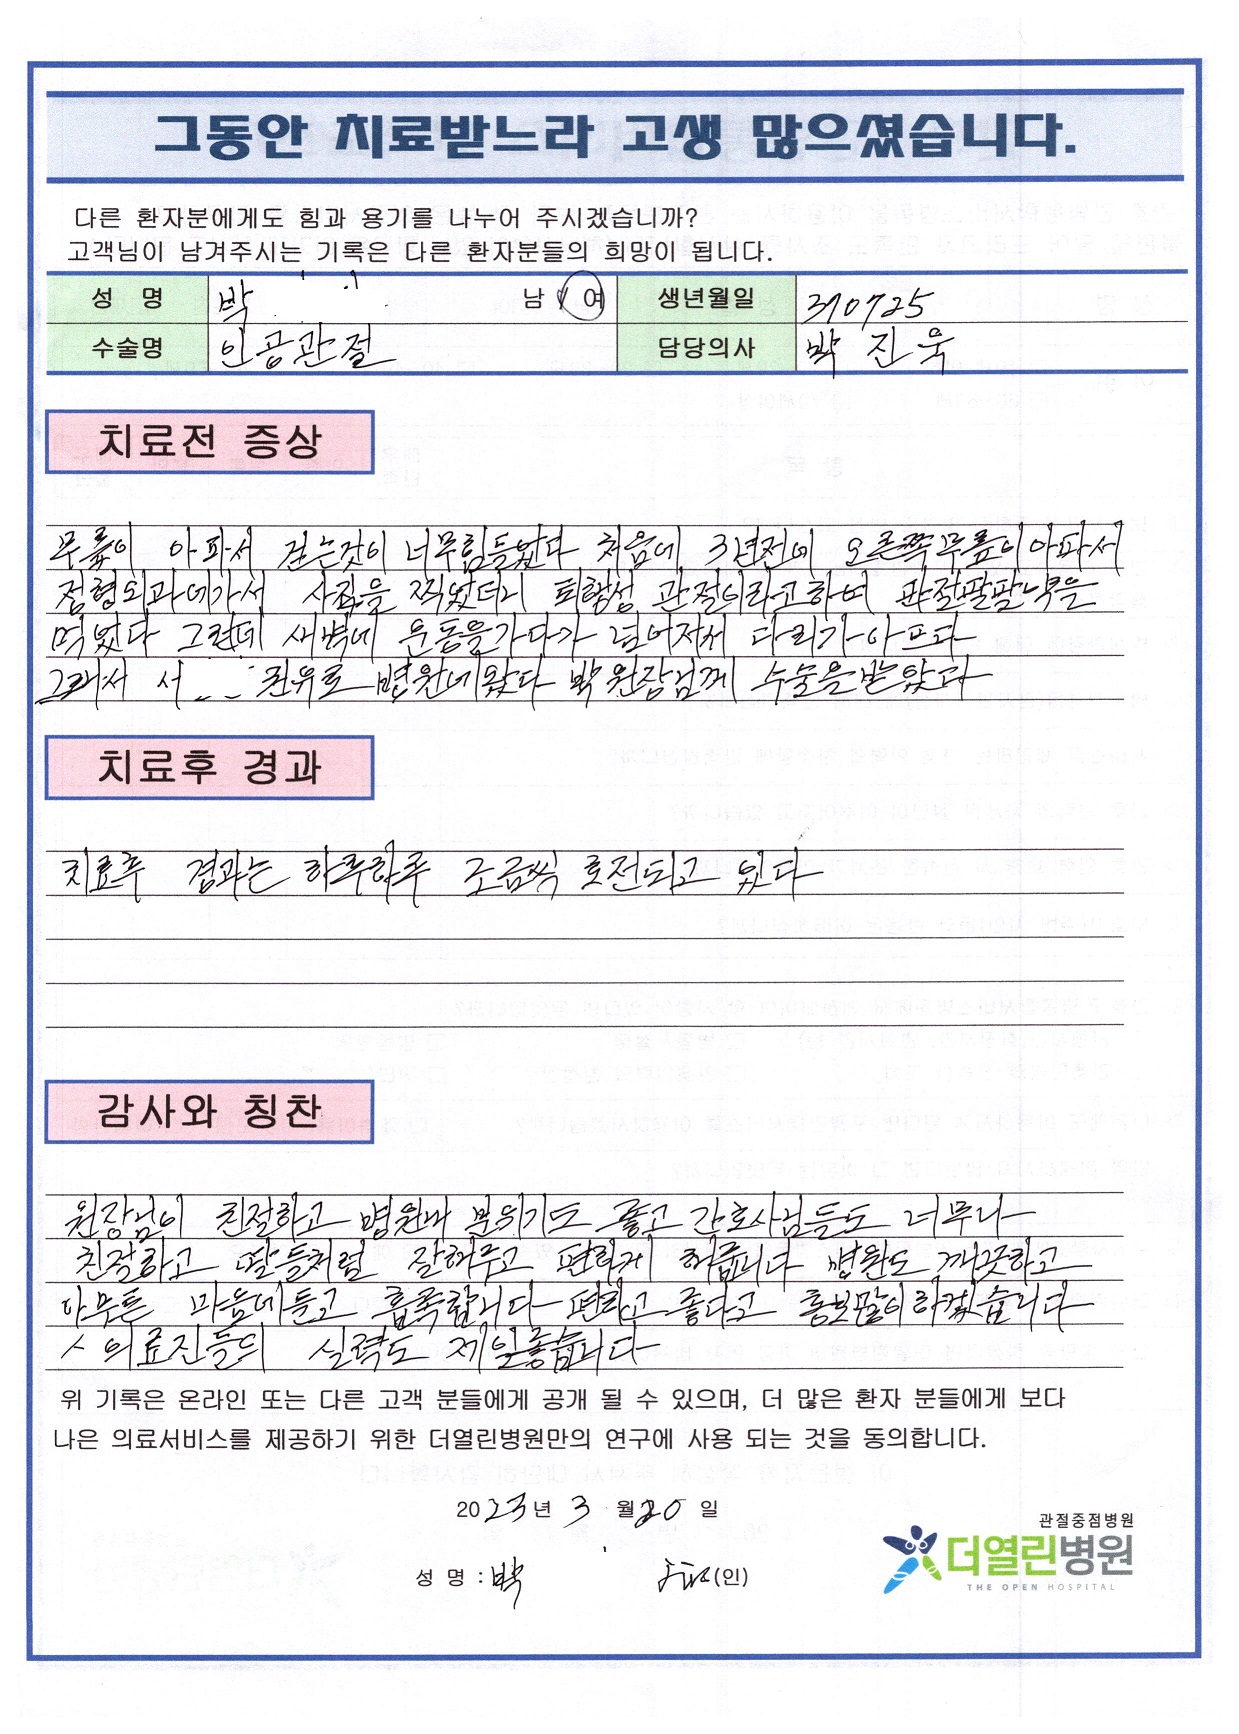 그동안 치료받느라 고생 많으셨습니다.
다른 환자분에게도 힘과 용기를 나누어 주시겠습니까?
고객님이 남겨주시는 기록은 다른 환자분들의 희망이 됩니다.
성 명 박 남 / 여 생년월일 370725
수술명 인공관절 담당의사 박진욱
치료전 증상
무릎이 아파서 걷는것이 너무힘들었다 처음에 3년전에 오른쪽무릎이아파서
정형외과에가서 사진을 찍었더니 퇴행성 관절이라고하며 관절팔팔약을
먹었다 그런데 새벽에 운동을가다가 넘어져서 다리가아프다
그래서 서 권유로 병원에왔다 박원장님께 수술을받았다
치료후 경과
치료후 경과는 하루하루 조금씩 호전되고 있다
감사와 칭찬
원장님이 친절하고 병원내 분위기도 좋고 간호사님들도 너무나
친절하고 딸들처럼 잘해주고 편하게 해줍니다 병원도 깨끗하고
아무튼 마음에들고 흡족합니다 편하고 좋다고 홍보많이하겠습니다
의료진들의 실력도 제일좋습니다
위 기록은 온라인 또는 다른 고객 분들에게 공개 될 수 있으며, 더 많은 환자 분들에게 보다
나은 의료서비스를 제공하기 위한 더열린병원만의 연구에 사용 되는 것을 동의합니다.
2023년 3 월 20 일
관절중점병원
더열린병원
THE OPEN HOSPITAL
성 명 : 박 (인)